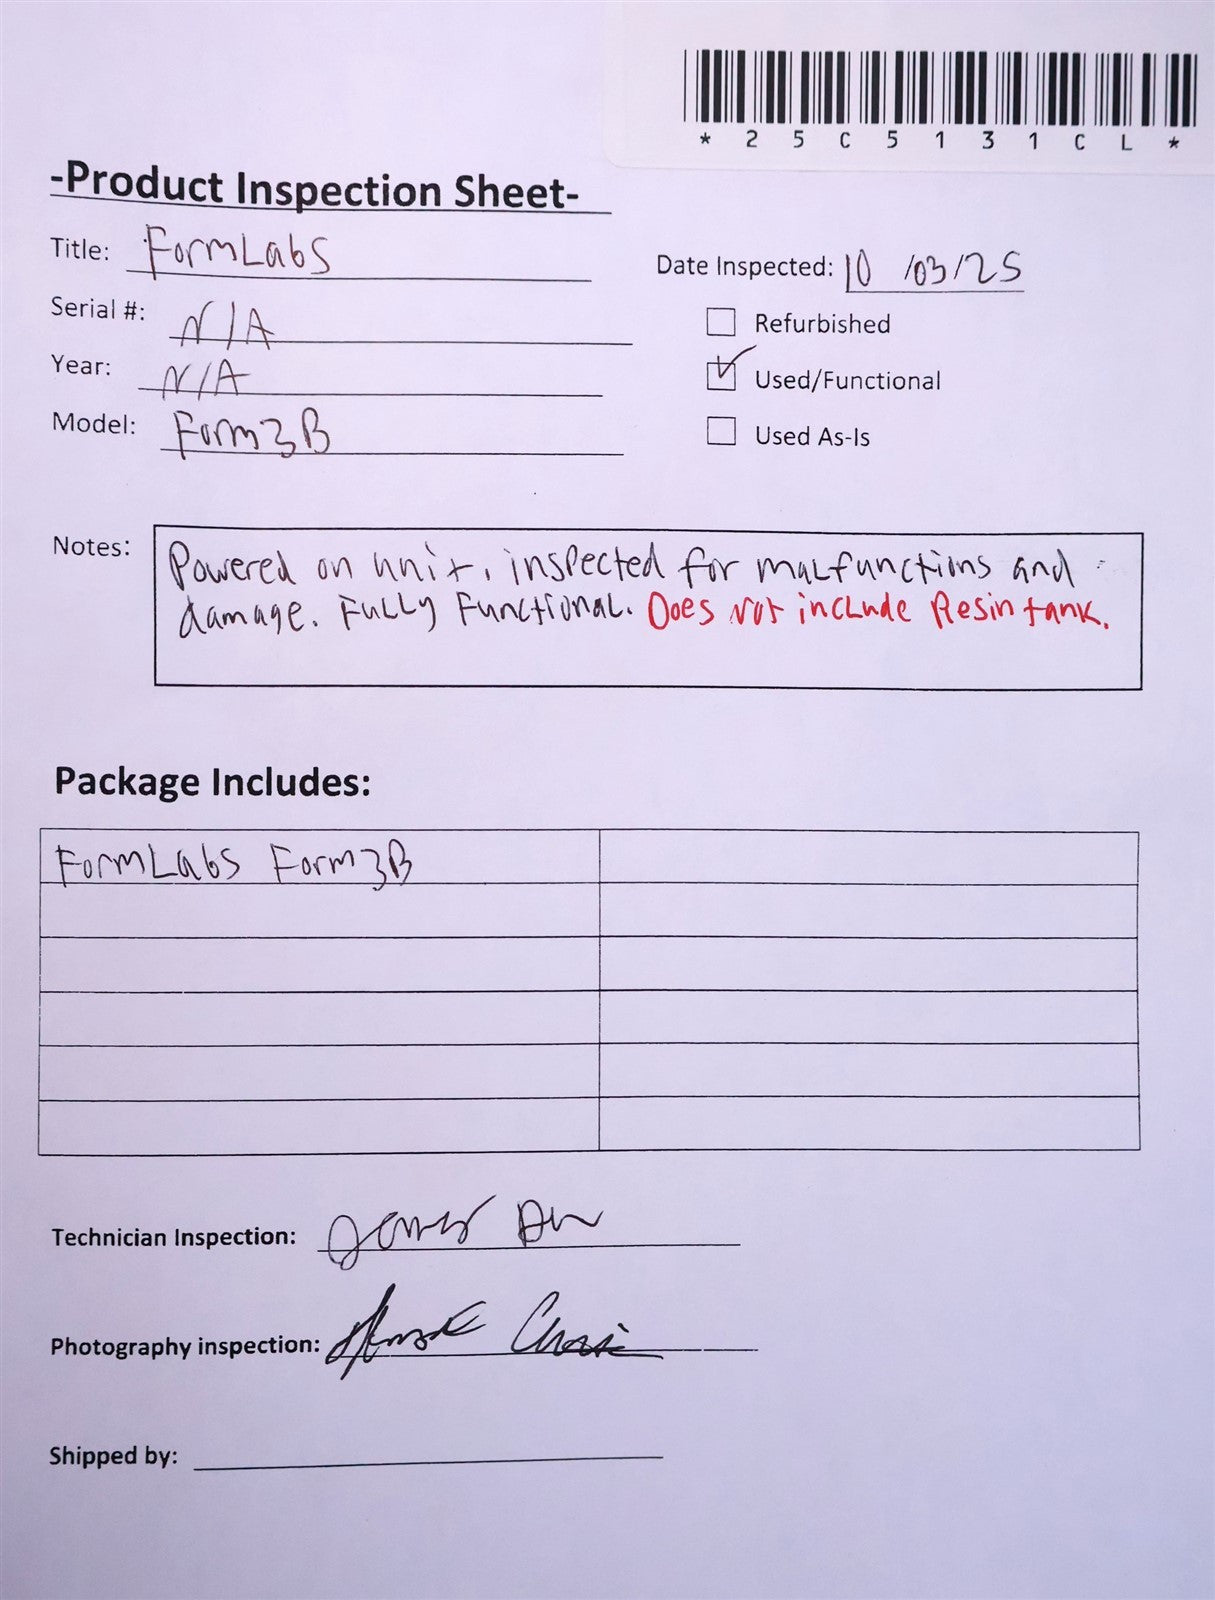 * 2 5 C 5 1 3 1 C L *
-Product Inspection Sheet-
Title: FormLabs
Date Inspected: 10 /03/25
Serial #: N/A
Refurbished
Year: N/A
Used/Functional
Model: Form3B
Used As-Is
Notes: Powered on unit, inspected for malfunctions and
damage. Fully Functional. Does Not include Resin tank.
Package Includes:
FormLabs Form3B
Technician Inspection:
Photography inspection:
Shipped by: